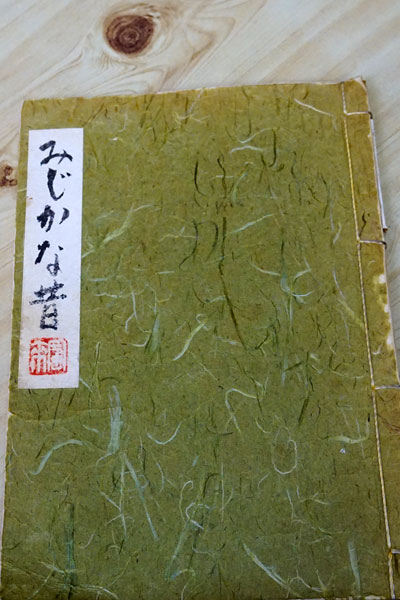 みじかな昔